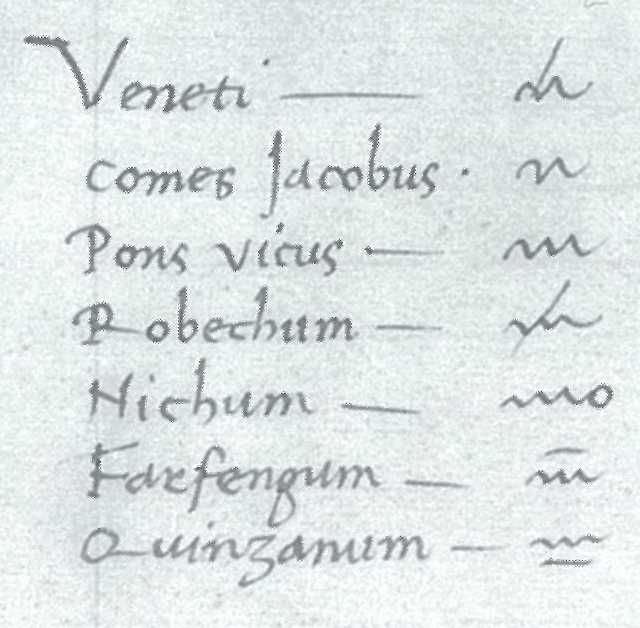 Veneti —
comes Jacobus ·
Pons vicus ·—
Robechum —
Hichum —
Farfengum —
Quinzanum —